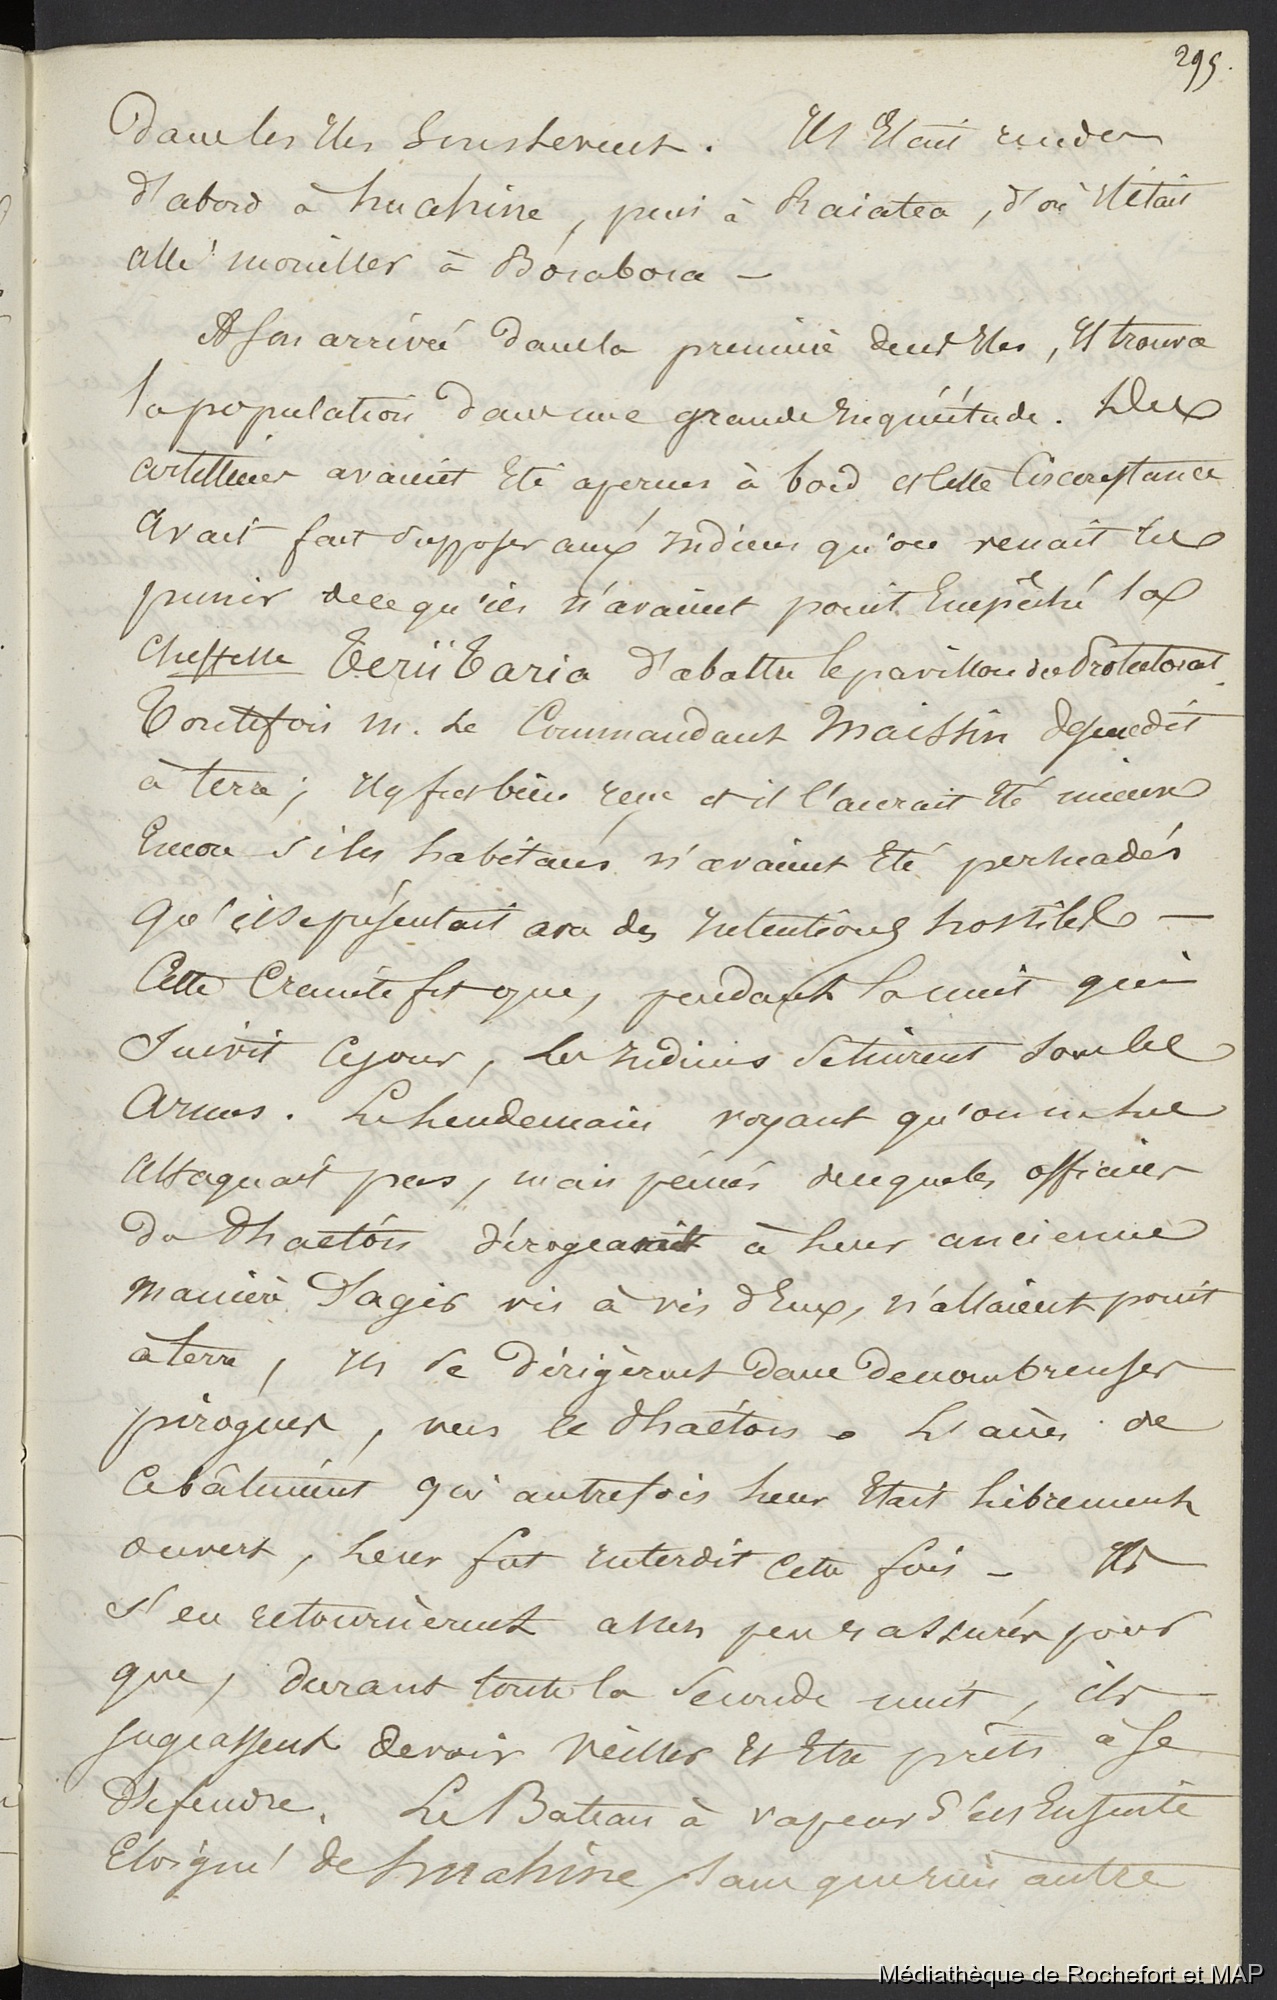 295.
Dans les Iles Sous le vent. Il s'était rendu
d'abord à huahine, puis à Raiatea, d'où il était
allé mouiller à Borabora —
A son arrivée dans la première de ces Iles, Il trouva
la population dans une grande Inquiétude. Des
artilleurs avaient Eté aperçus à bord et cette Circonstance
avait fait supposer aux Indiens qu'on venait les
punir de ce qu'ils n'avaient point Empêché la
cheffesse Terii Taria d'abattre le pavillon du Protectorat.
Toutefois M. Le Commandant Maissin descendit
à terre ; Il y fut bien reçu et il l'aurait Eté mieux
Encore si les habitans n'avaient Eté persuadés
qu'il se présentait avec des Intentions hostiles —
Cette Crainte fit que, pendant la nuit qui
Suivit ce jour, les Indiens se tinrent sous les
Armes. Le lendemain voyant qu'on ne les
attaquait pas, mais peinés de ce que les officiers
du Phaéton dérogeant à leur ancienne
manière d'agir vis à vis d'Eux, n'allaient point
à terre, Ils se dirigèrent dans de nombreuses
pirogues, vers le Phaéton. L'accès de
ce bâtiment qui autrefois leur Etait librement
ouvert, leur fut Interdit cette fois — Ils
s'en retournèrent assez peu rassurés pour
que, durant toute la Seconde nuit, ils
jugeassent devoir veiller et Etre prêts à se
défendre. Le Bateau à vapeur s'est Ensuite
Eloigné de huahine, sans que rien autre
Médiathèque de Rochefort et MAP